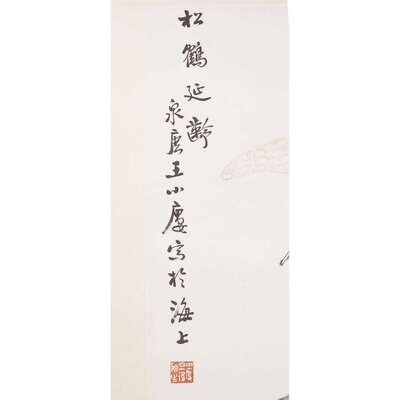 松鶴延齡
泉唐王小廔寫於海上